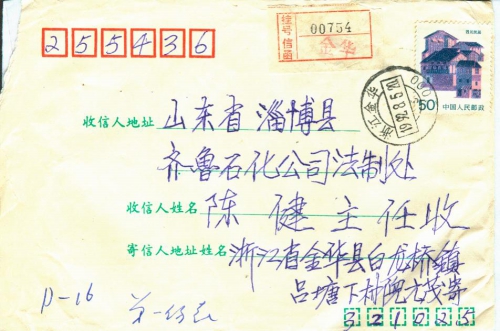 挂号信函
00754
金华
江西民居
255436
50
中国人民邮政
浙江金华
1992.8.5.
收信人地址 山东省淄博县
齐鲁石化公司法制处
收信人姓名 陈健主任收
寄信人地址姓名 浙江省金华县白龙桥镇
吕塘下村倪尤茂寄
p-16
321025